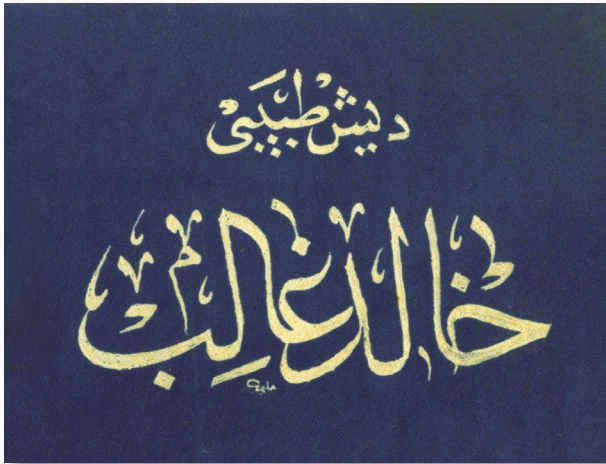 ديش طبيبى
خالد غالب